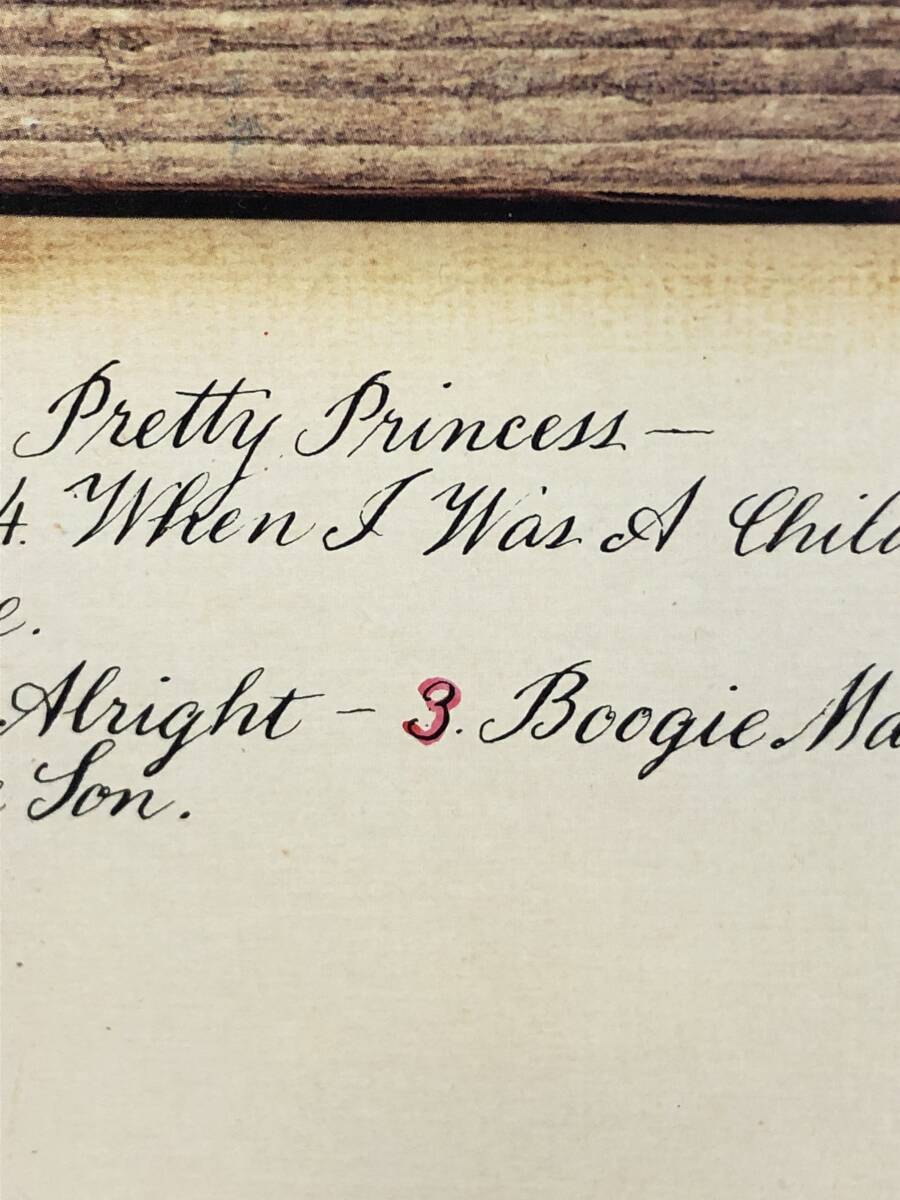 Pretty Princess —
4. When I Was A Child
e.
Alright - 3. Boogie Ma
Son.